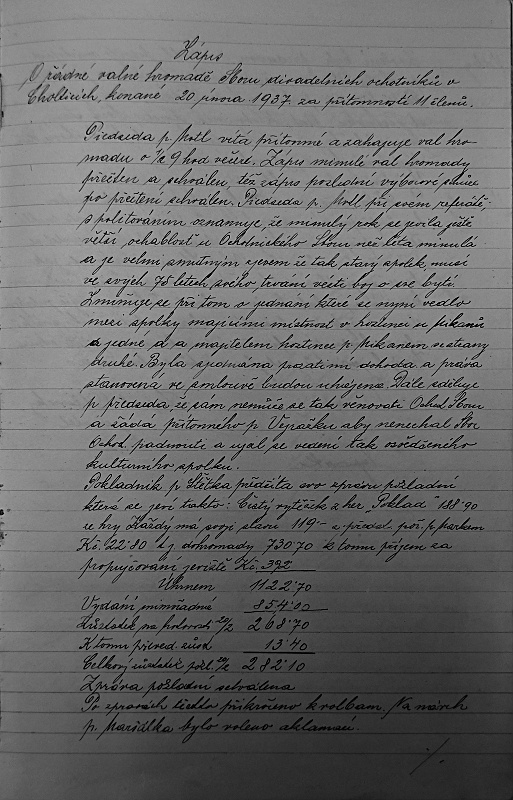 Zápis
O řádné valné hromadě Sboru divadelních ochotníků v
Cholticích, konané 20 února 1937 za přítomnosti 11 členů.
Předseda p. Motl vítá přítomné a zahajuje val hro-
madu o ½ 9 hod večer. Zápis minulé val hromady
přečten a schválen, též zápis poslední výborové schůze
po přečtení schválen. Předseda p. Motl při svém referátě,
s politováním oznamuje, že minulý rok se jevila ještě
větší, ochablost u Ochotnického Sboru než léta minulá
a je velmi smutným zjevem že tak starý spolek, musí
ve svých 75 letech svého trvání vésti boj o své bytí.
Zmiňuje se při tom o jednání které se nyní vedlo
mezi spolky majícími místnost v hostinci u Pikanů
s jedné a majitelem hostince p. Pikanem se strany
druhé. Byla sjednána prozatím dohoda a práva
stanovená ve smlouvě budou uhájena. Dále sděluje
p předseda, že sám nemůže se tak věnovati Ochot. Sboru
a žádá přítomného p. aby nenechal Sbor
Ochot. padnouti a ujal se vedení tak osvědčeného
kulturního spolku.
Pokladník p Štětka předčítá svo zprávu pokladní
která se jeví takto: Čistý výtěžek z her "Poklad" 188·90
ze hry Každý má svoji slani 119·- a předst. poř. p Markem
Kč. 22·80 t.j. dohromady 730·70 k tomu příjem za
propůjčování jeviště Kč. 392
Úhrnem 1122·70
Vydání mimořádné 854·00
Zůstatek na hotovosti 268·70
K tomu převed. zůst. 13·40
Celkový zůstatek pokl. 282·10
Zpráva pokladní schválena
Po zprávách těchto přikročeno k volbám. Na návrh
p. Maršálka bylo voleno aklamací.
·/.